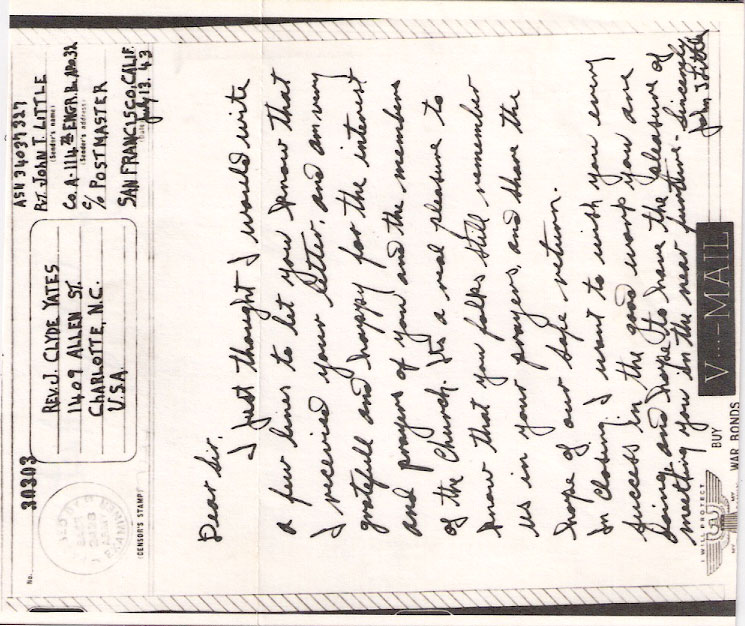 No.
30303
REV. J. CLYDE YATES
1409 ALLEN ST.
CHARLOTTE, N.C.
U.S.A.
ASN 34037327
PVT. JOHN T. LITTLE
(Sender's name)
CO. A-114th ENGR. B. APO. 32
(Sender's address)
c/o POSTMASTER
SAN FRANCISCO, CALIF.
Date July 13. 43
(CENSOR'S STAMP)
Dear Sir,
I just thought I would write
a few lines to let you know that
I received your letter, and am very
gratefull and happy for the interest
and prayers of you and the members
of the Church. Its a real pleasure to
know that you folks still remember
us in your prayers, and share the
hope of our safe return.
In closing I want to wish you every
success in the good work you are
doing and hope to have the pleasure of
meeting you in the near furture - Sincerely
John T Little
V···—MAIL
I WILL PROTECT
BUY
WAR BONDS